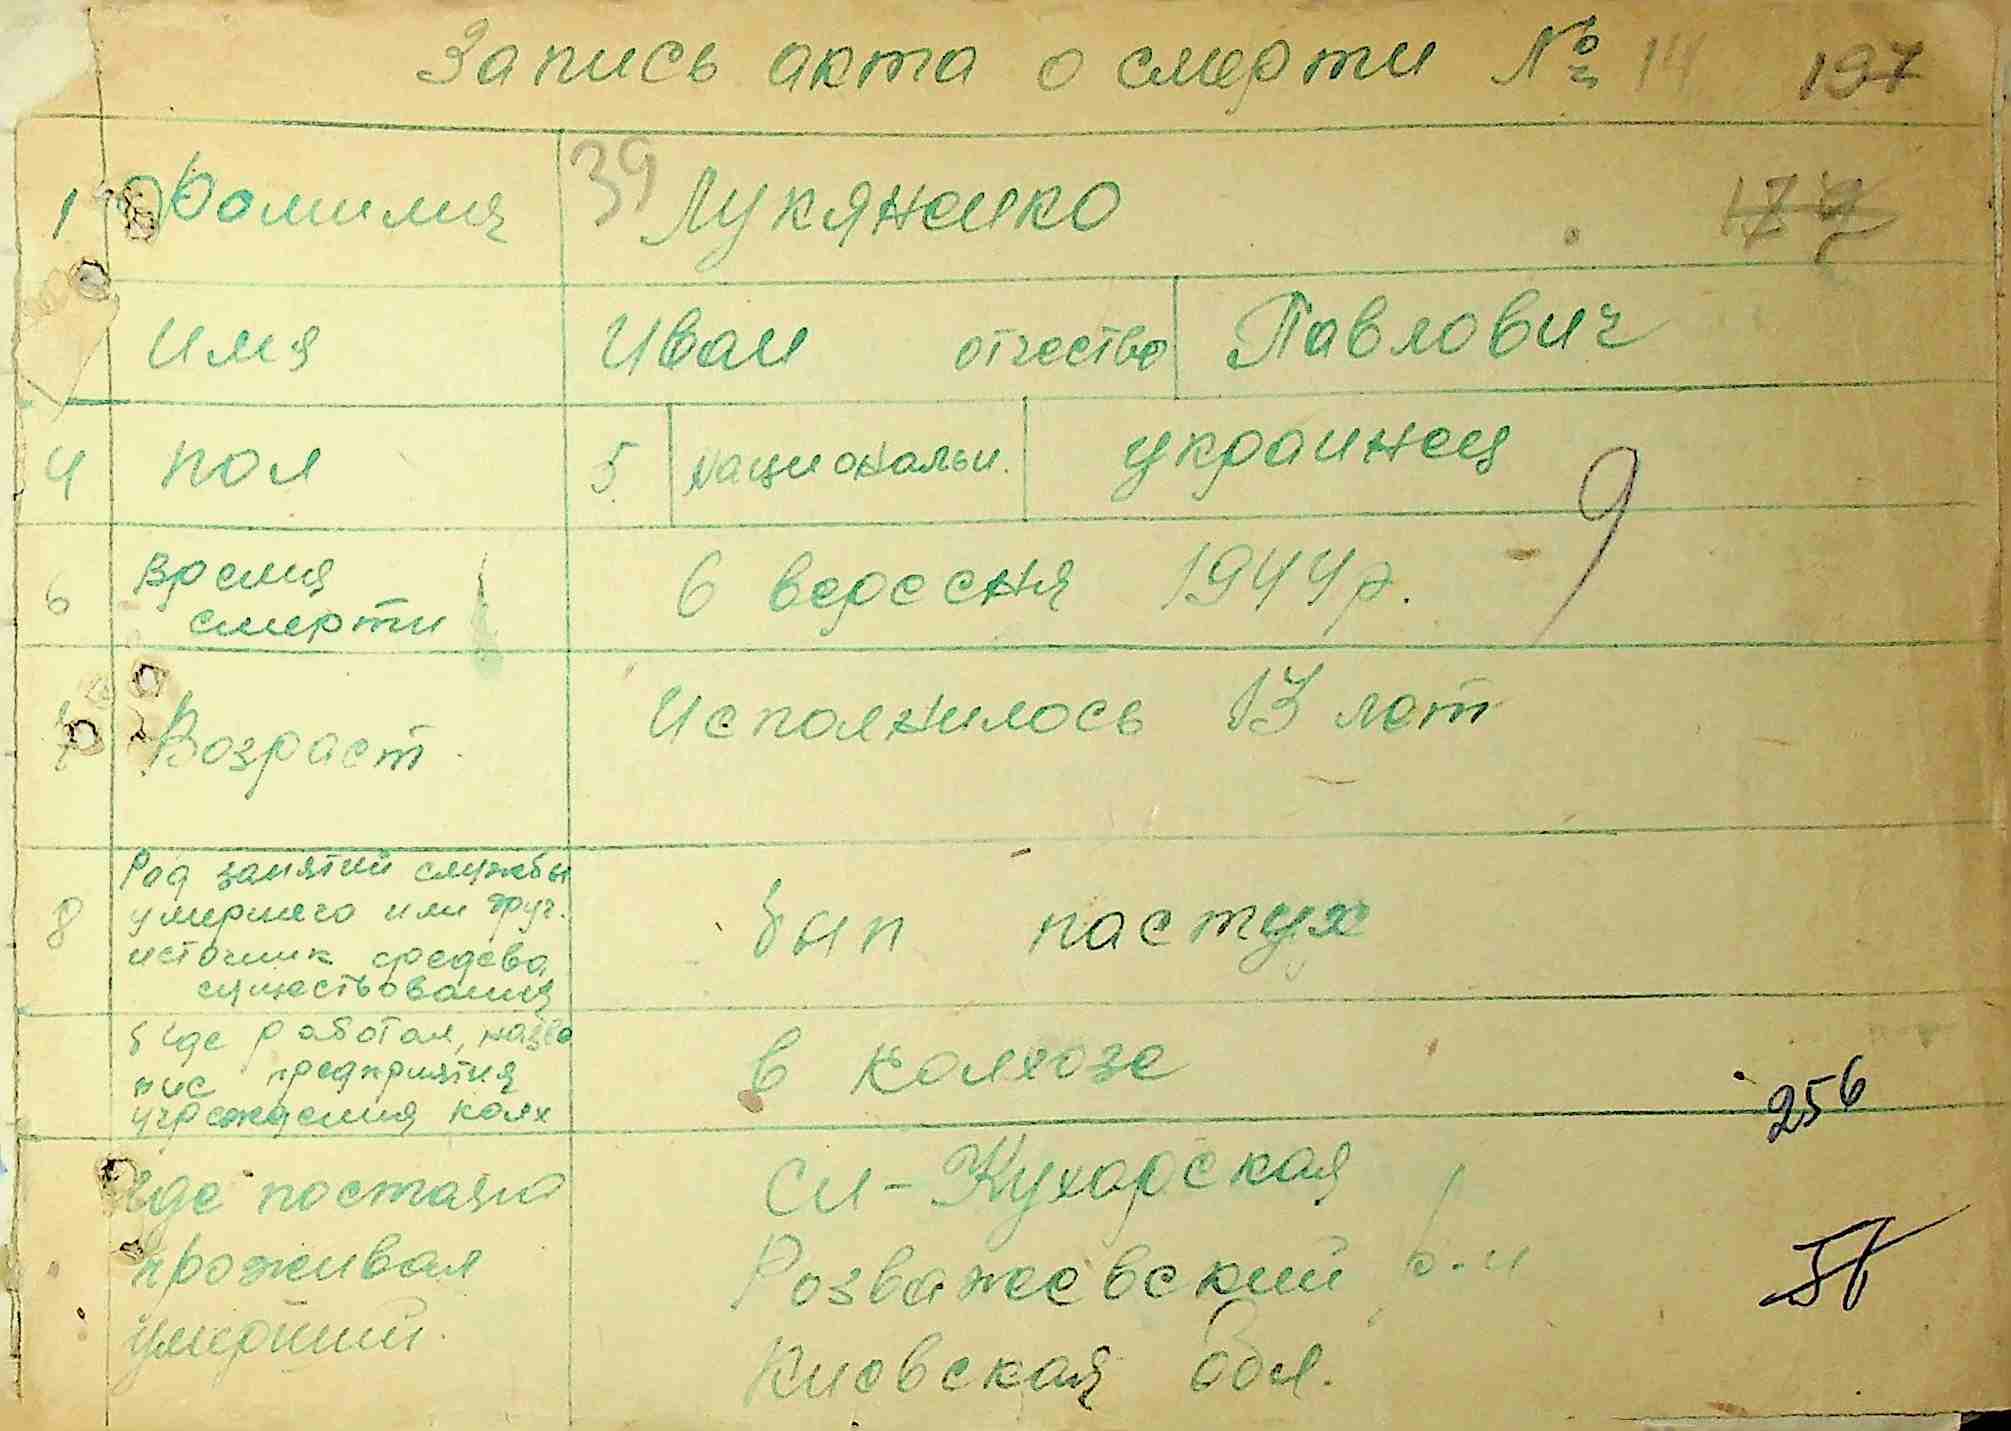 Запись акта о смерти № 14 197
1 Фамилия 39 Лукяненко 179
имя Иван отчество Павлович
4 пол 5 национальн. украинец
9
6 время 6 вересня 1944 р.
смерти
7 Возраст Исполнилось 13 лет
8 Род занятий службы
умершего или друг. был пастух
источник средсва
существования
где работал, назва
ние предприятия в колхозе
учреждения колх
256
где постаяно См-Кухарская
проживал Розважевский р-н
56
умерший Киевская обл.